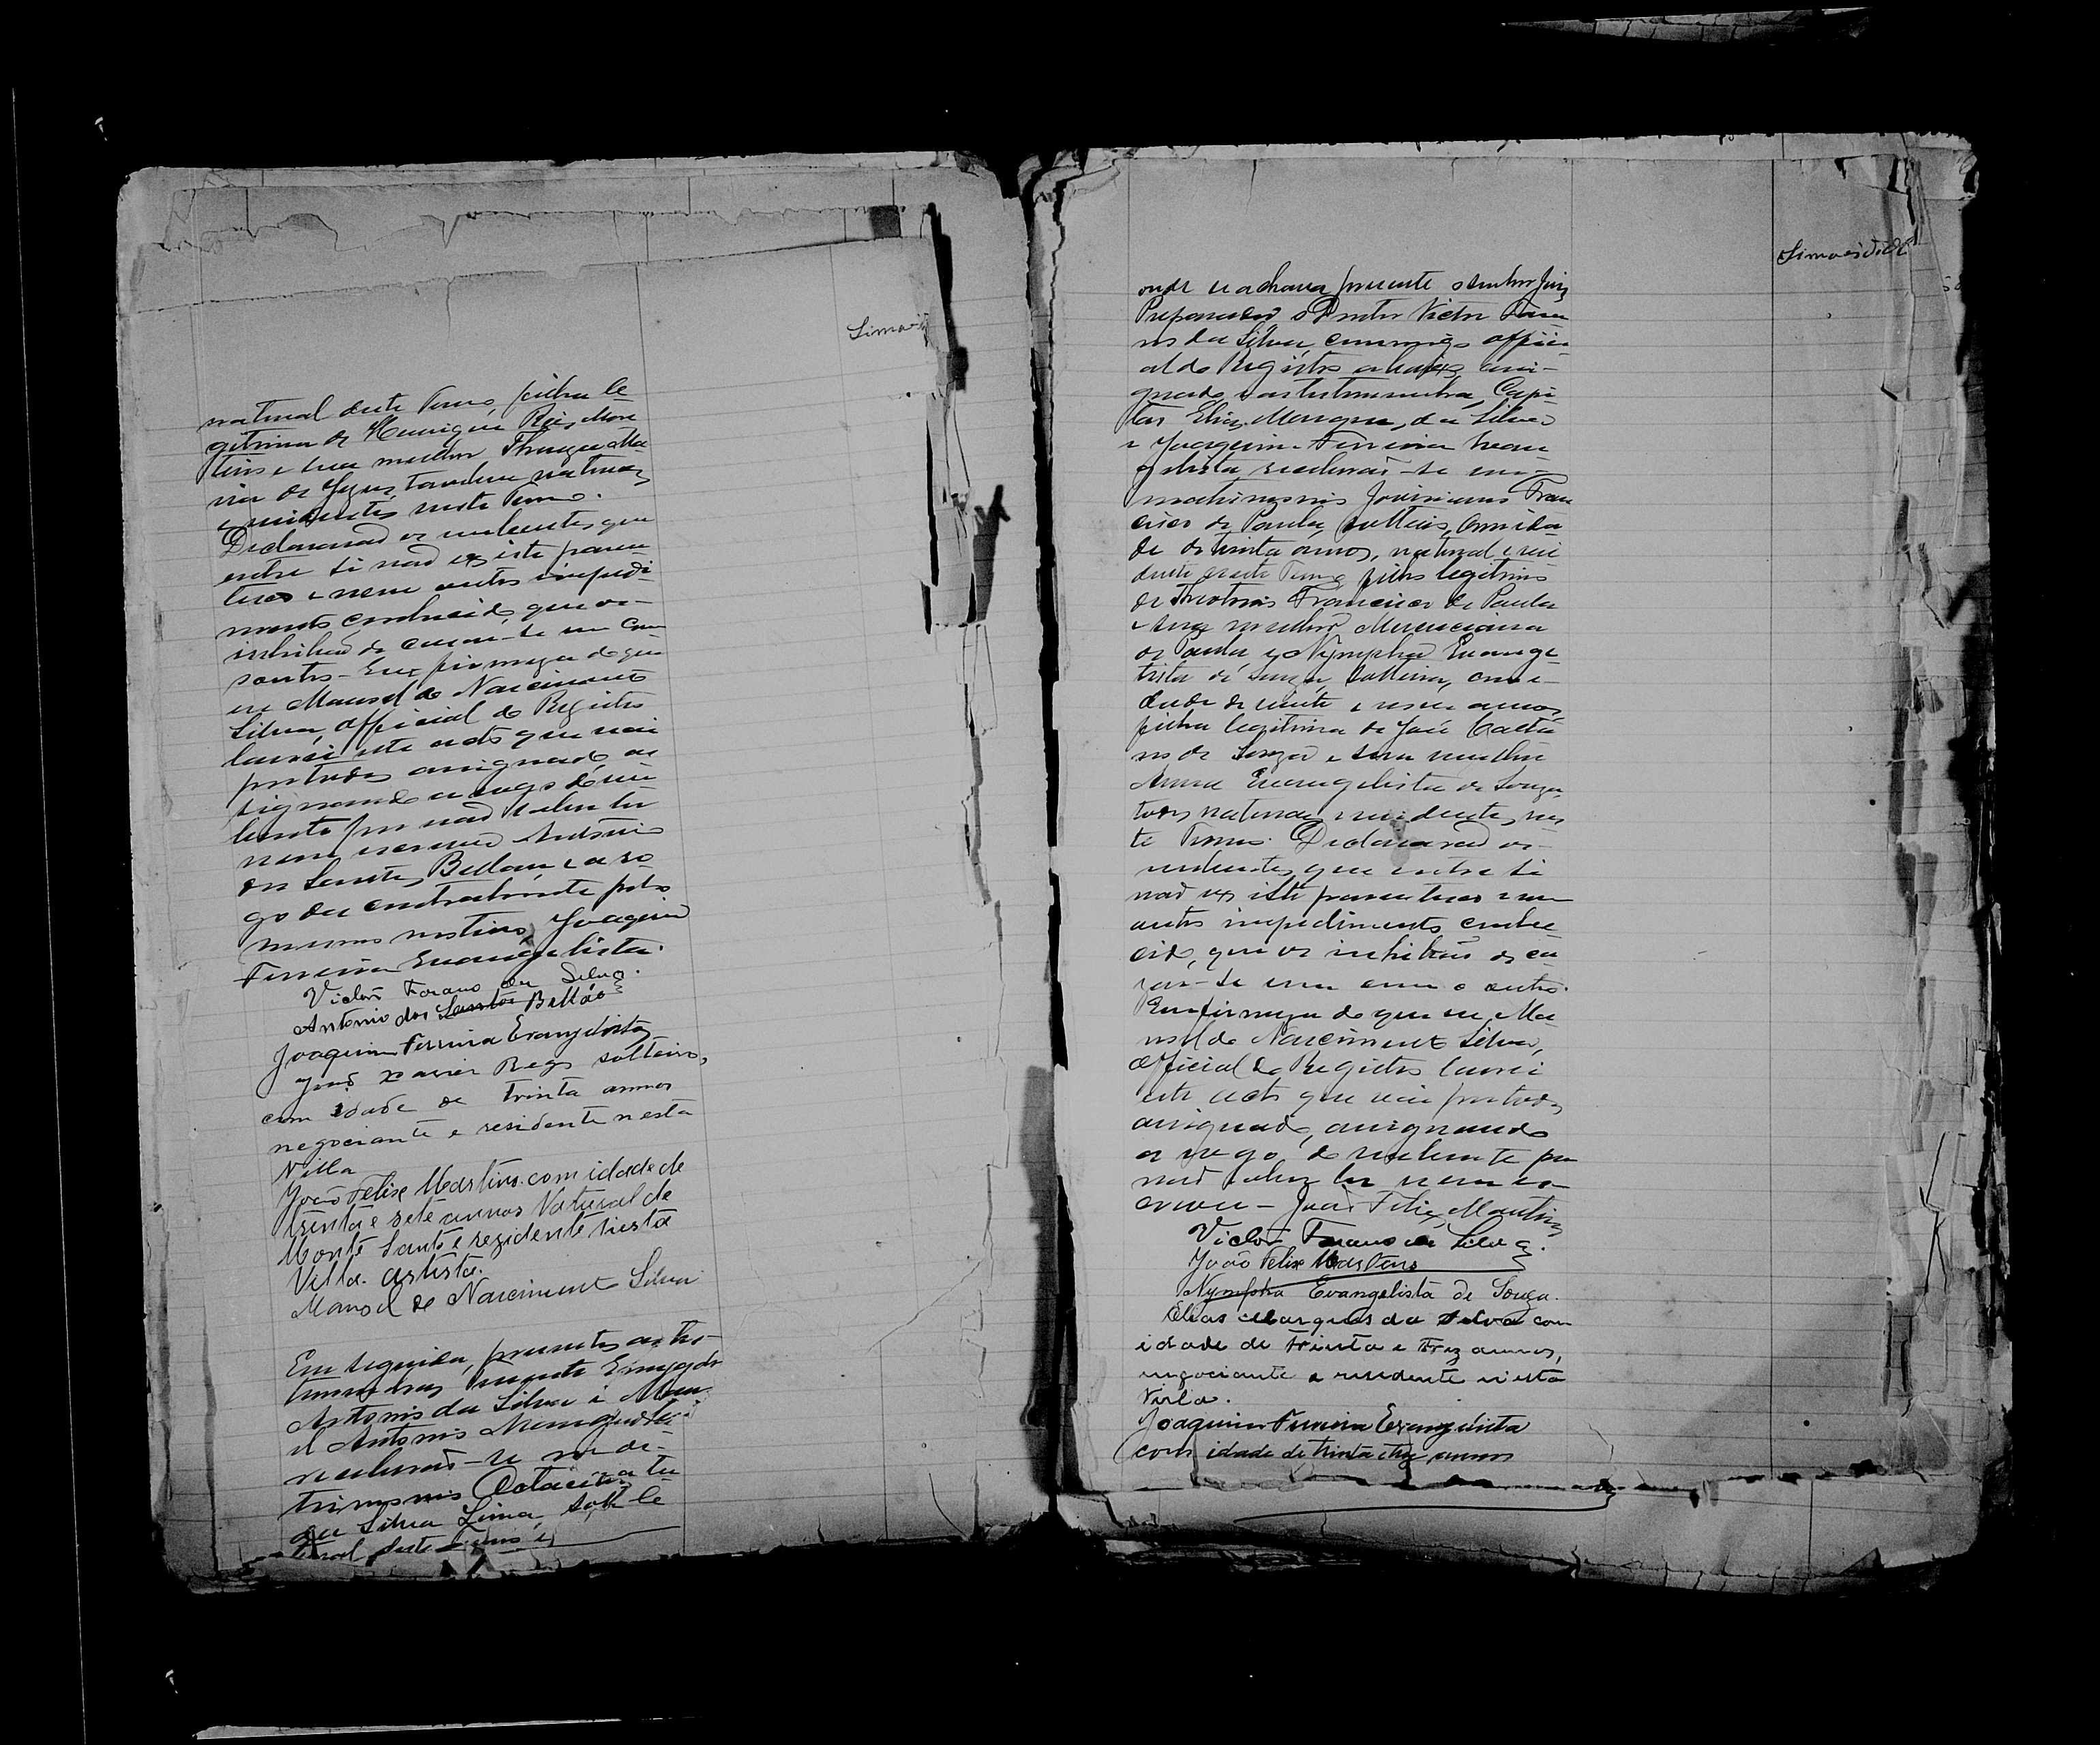 Simões
natural deste Termo, filha le
gitima de Henrique Reis, Mar
tins e sua mulher Thereza Ma
ria de Jezus, tambem naturaes
e residentes neste Termo.
Declararaõ os nubentes, que
entre si naõ existe paren
tesco e nem outro impedi
mento conhecido, que os
inhibaõ de cazar-se um com
o outro. Em firmeza do que
eu Manoel do Nascimento
Silva, official do Registro
lavrei este acto que vai
por todos assignado, as
signando a rogo do nu
bente por naõ saber ler
nem escrever Antonio
dos Santos Beltaõ, e a ro
go da contrahente pelo
mesmo motivo, Joaquim
Ferreira Evangelista.
Victor Torano da Silva.
Antonio dos Santos Beltão
Joaquim Ferreira Evangelista
José Xavier Rego solteiro,
com idade de trinta annos
negociante e residente nesta
Villa
João Felix Martins com idade de
trinta e sete annos Natural de
Monte Santo e rezidente nesta
Villa. artista.
Manoel do Nascimento Silva
Em seguida, presentes as tes-
temunhas
Antonio da Silva e Mano
el Antonio
receberaõ-se em
trimonio
da Silva Lima, solt
deste Termo
Simões
onde se achava prezente o senhor Juiz
Preparador o Doutor Victor Tora
no da Silva, commigo offici
al do Registro abaixo assi-
gnado e as testemunhas, Capi
tão Elias Marques da Silva
e Joaquim Ferreira Evan
gelista receberaõ-se em
matrimonio Joviniano Fran
cisco de Paula, solteiro, com ida
de de trinta annos, natural e resi
dente neste Termo, filho legitimo
de Theotonio Francisco de Paula
e sua mulher Merenciana
de Paula e Nympha Evange
lista de Souza, solteira, com i-
dade de vinte e annos,
filha legitima de José Caeta
no de Souza e sua mulher
Anna Evangelista de Souza
todos naturaes e rezidentes nes
te Termo. Declararaõ os
nubentes, que entre si
naõ existe parentesco e nem
outro impedimento conhe
cido, que os inhibaõ de ca
zar-se um com o outro.
Em firmeza do que eu Ma
noel do Nascimento Silva,
official do Registro lavrei
este acto que vai por todos
assignado, assignando
a rogo do nubente por
naõ saber ler nem es
crever - Joaõ Felix Martins
Victor Torano da Silva.
João Felix Martins
Nympha Evangelista de Souza.
Elias Marques da Silva com
idade de trinta e trez annos,
negociante e residente nesta
Villa.
Joaquim Ferreira Evangelista
com idade de trinta e trez annos